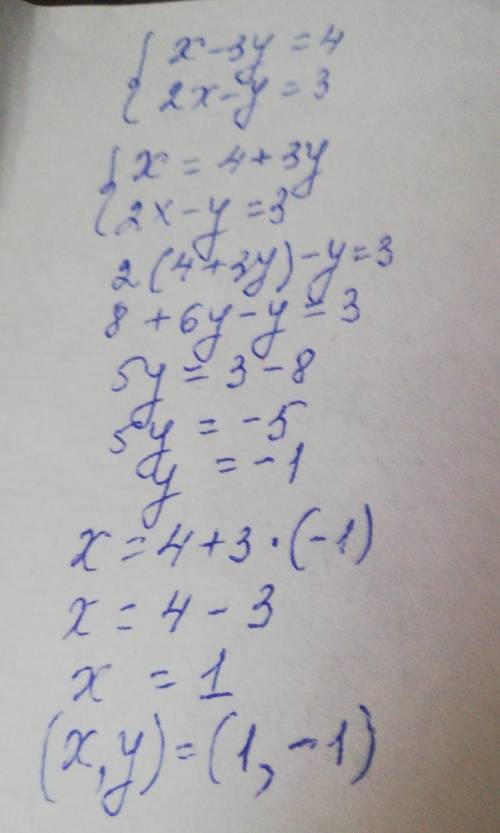 { x - 3y = 4
2x - y = 3
{ x = 4 + 3y
2x - y = 3
2(4 + 3y) - y = 3
8 + 6y - y = 3
5y = 3 - 8
5y = -5
y = -1
x = 4 + 3 · (-1)
x = 4 - 3
x = 1
(x, y) = (1, -1)